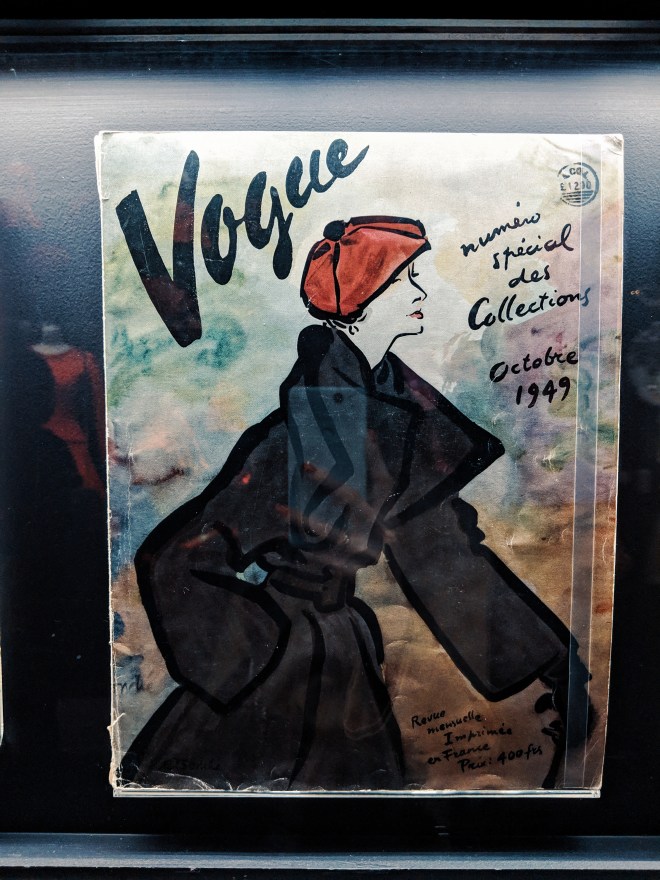 Vogue
numéro
spécial
des
Collections
Octobre
1949
Revue
mensuelle
Imprimée
en France
Prix: 400 frs